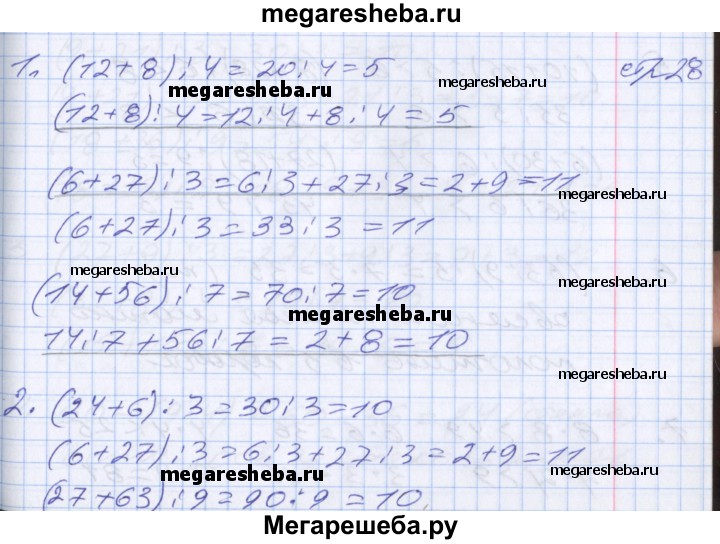 megaresheba.ru
1. (12+8):4=20:4=5 стр.28
megaresheba.ru
megaresheba.ru
(12+8):4=12:4+8:4=5
(6+27):3=6:3+27:3=2+9=11
megaresheba.ru
(6+27):3=33:3=11
megaresheba.ru
(14+56):7=70:7=10
megaresheba.ru
14:7+56:7=2+8=10
2. (24+6):3=30:3=10
megaresheba.ru
(6+27):3=6:3+27:3=2+9=11
megaresheba.ru
megaresheba.ru
(27+63):9=90:9=10.
Мегарешеба.ру